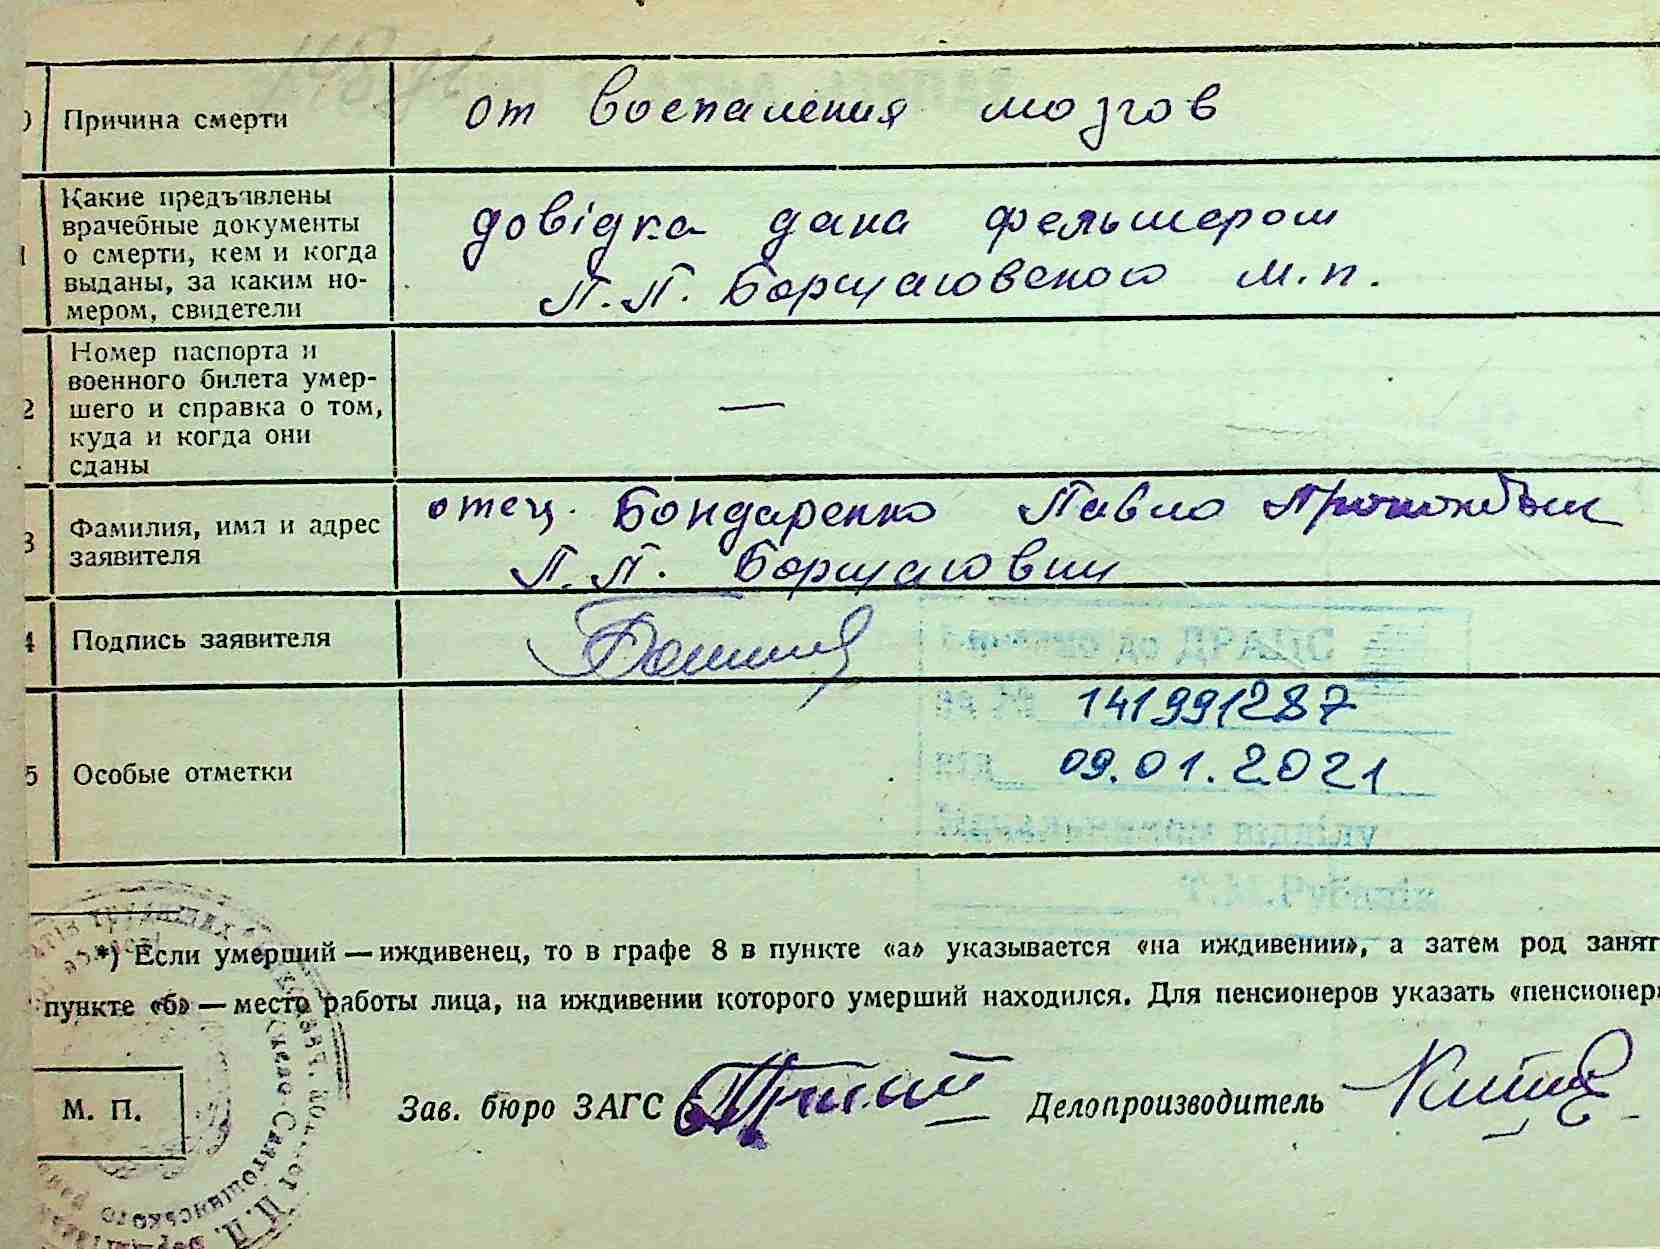 Причина смерти
от воспаления мозгов
Какие предъявлены
врачебные документы
о смерти, кем и когда
выданы, за каким но-
мером, свидетели
довідка дана фельшером
П.П. Борщаговского м.п.
2
Номер паспорта и
военного билета умер-
шего и справка о том,
куда и когда они
сданы
—
3
Фамилия, имя и адрес
заявителя
отец. Бондаренко Павло
П.П. Борщаговки
4
Подпись заявителя
5
Особые отметки
141991287
09.01.2021
*) Если умерший — иждивенец, то в графе 8 в пункте «а» указывается «на иждивении», а затем род занят
пункте «б» — место работы лица, на иждивении которого умерший находился. Для пенсионеров указать «пенсионер
М. П.
Зав. бюро ЗАГС
Делопроизводитель